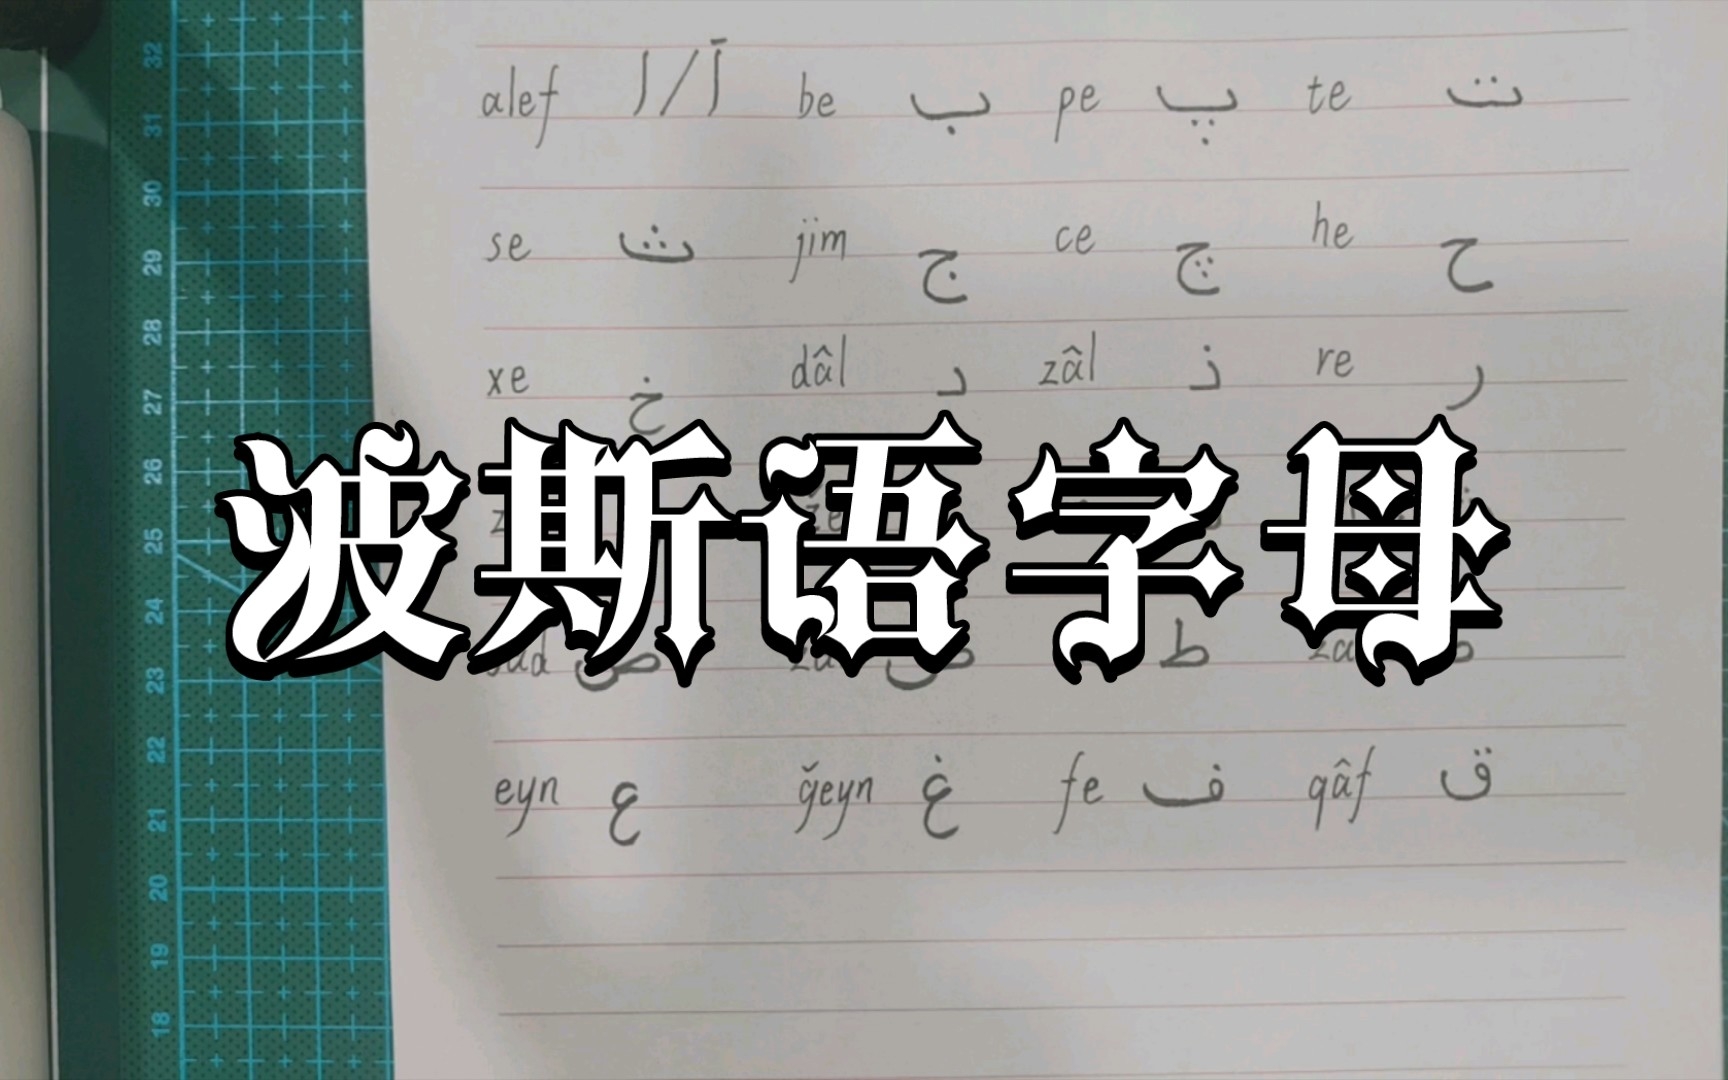 alef ا / آ be ب pe پ te ت
se ث jim ج ce چ he ح
xe خ dâl د zâl ذ re ر
波斯语字母
ص ط
eyn ع ğeyn غ fe ف qâf ق
32
31
30
29
28
27
26
25
24
23
22
21
20
19
18